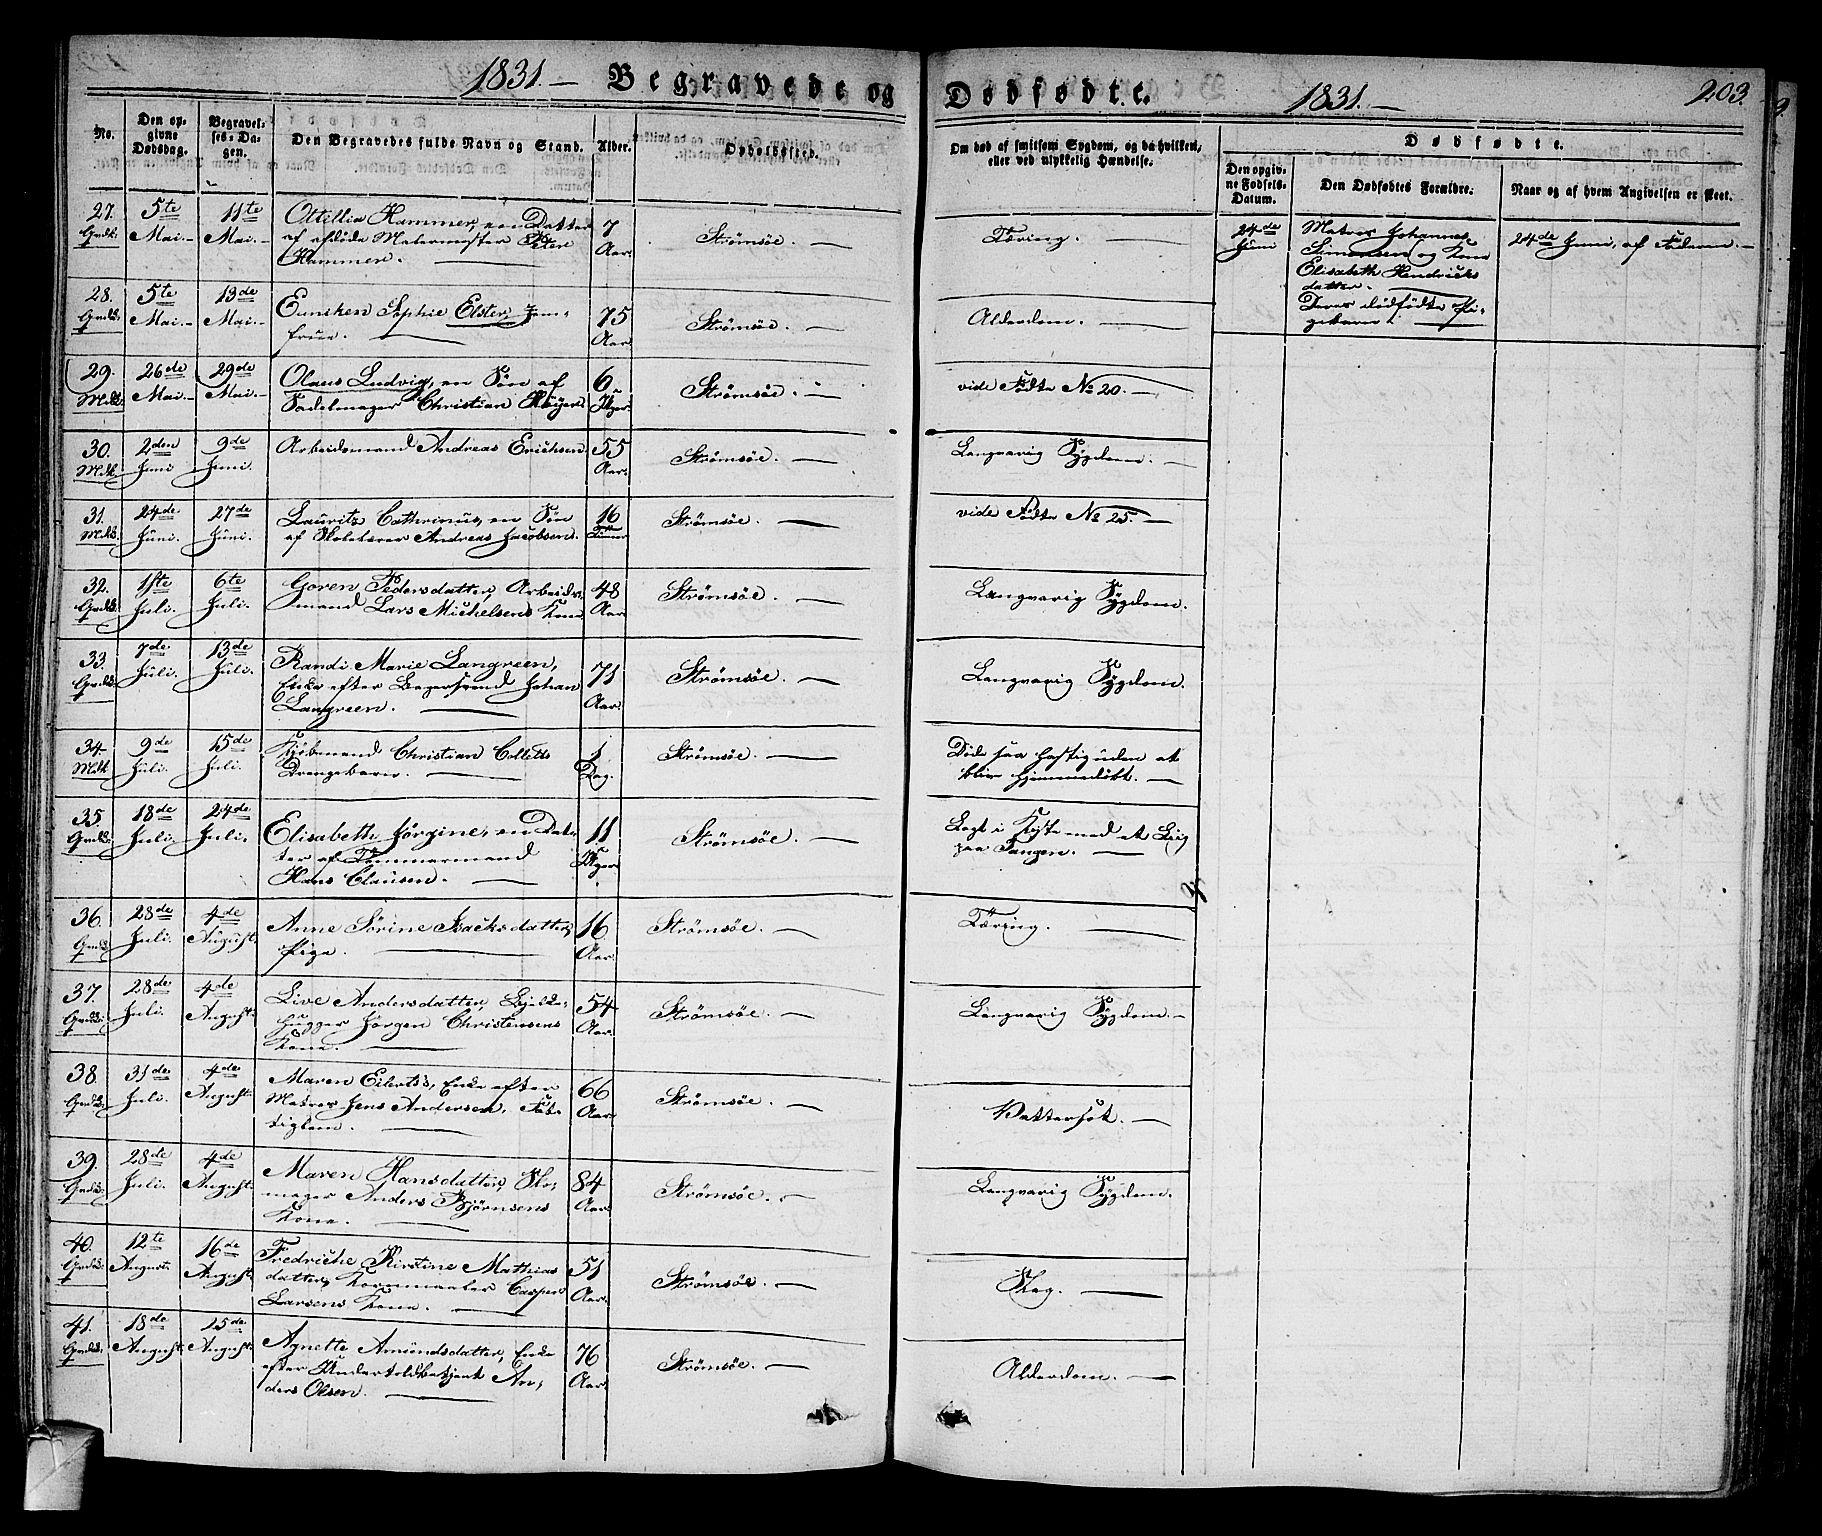 1831.— Begravede og
Dødfødte. 1831.— 203.
No.
Den opgivne Dødsdag.
Begravelses-Dagen.
Den Begravedes fulde Navn og Stand.
Alder.
Opholdssted.
Om død af smitsom Sygdom, og da hvilken,
eller ved ulykkelig Hændelse.
Dødfødte.
Den opgivne Fødsels-Datum.
Den Dødfødtes Forældre.
Naar og af hvem Angivelsen er skeet.
27. 5te Mai.— 11te Mai.—
Ottillia Hammer, en Datter
af afdøde Malermester Peter
Hammer. —
7 Aar. Strømsøe. — Tæring. —
24de Juni
Matros Johannes
Simonsen og Kone
Elisabeth Hendrichs
datter. —
Deres dødfødte Pi-
gebarn. —
24de Juni, af Faderen. —
28. 5te Mai.— 13de Mai.—
Sophie Elster, Jom-
frue. —
75 Aar. Strømsøe. — Alderdom. —
29. 26de Mai.— 29de Mai.—
Olaus Ludvig, en Søn af
Sadelmager Christian
6 Uger Strømsøe. — vide Fødte No 20. —
30. 2den Juni 9de Juni.
Arbeidsmand Andreas Erichsen
55 Aar. Strømsøe. — Langvarig Sygdom. —
31. 24de Juni. 27de Juni.
Laurits Cathrinus, en Søn
af Andreas Jacobsen.
16 Timer Strømsøe. — vide Fødte No 25. —
32. 1ste Juli. 6te Juli.
Goren Pedersdatter, Arbeids-
mand Lars Michelsens Kone
48 Aar. Strømsøe. — Langvarig Sygdom.
33. 7de Juli. 13de Juli.
Randi Marie Langreen,
Enke efter Johan
Langreen. —
71 Aar. Strømsøe. — Langvarig Sygdom.
34. 9de Juli. 15de Juli.
Kjøbmand Christian Colletts
Drengebarn. —
1 Dag. Strømsøe. —
Døde saa hastig uden at
blive hjemmedøbt. —
35. 18de Juli. 24de Juli.
Elisabeth Jørgine, en Dat-
ter af Tømmermand
Hans Clausen. —
11 Uger Strømsøe. —
Lagt i Kiste med et Liig
paa Tangen. —
36. 28de Juli. 4de August.
Anne Sørine Isachsdatter,
Pige. —
16 Aar. Strømsøe. — Tæring. —
37. 28de Juli. 4de August.
Live Andersdatter, Bjelke-
hugger Jørgen Christensens
Kone. —
54 Aar. Strømsøe. — Langvarig Sygdom. —
38. 31de Juli. 4de August.
Maren Eilerts, Enke efter
Matros Jens Andersen, Fat-
tiglem. —
66 Aar. Strømsøe. — Vattersot. —
39. 28de Juli. 4de August.
Maren Hansdatter, Sko-
mager Anders Bjørnsens
Kone. —
84 Aar. Strømsøe. — Langvarig Sygdom.
40. 12te August 16de August.
Fredriche Kirstine Mathias
datter, Kornmaaler Casper
Larsens Kone. —
51 Aar. Strømsøe. —
41. 18de August. 25de August.
Agnette Amundsdatter, Enke
efter Undertoldbetjent An-
ders Olsen. —
76 Aar. Strømsøe. — Alderdom. —